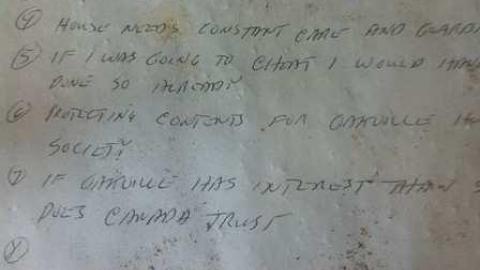 ④ HOUSE NEEDS CONSTANT CARE AND GUARD
⑤ IF I WAS GOING TO CHEAT I WOULD HAVE
DONE SO ALREADY
⑥ PROTECTING CONTENTS FOR OAKVILLE
SOCIETY
⑦ IF OAKVILLE HAS INTEREST THAN
DOES CANADA TRUST